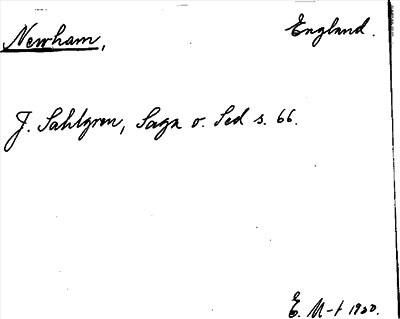 Newham, England.
J. Sahlgren, Saga o. Sed s. 66.
E. M-t 1920.